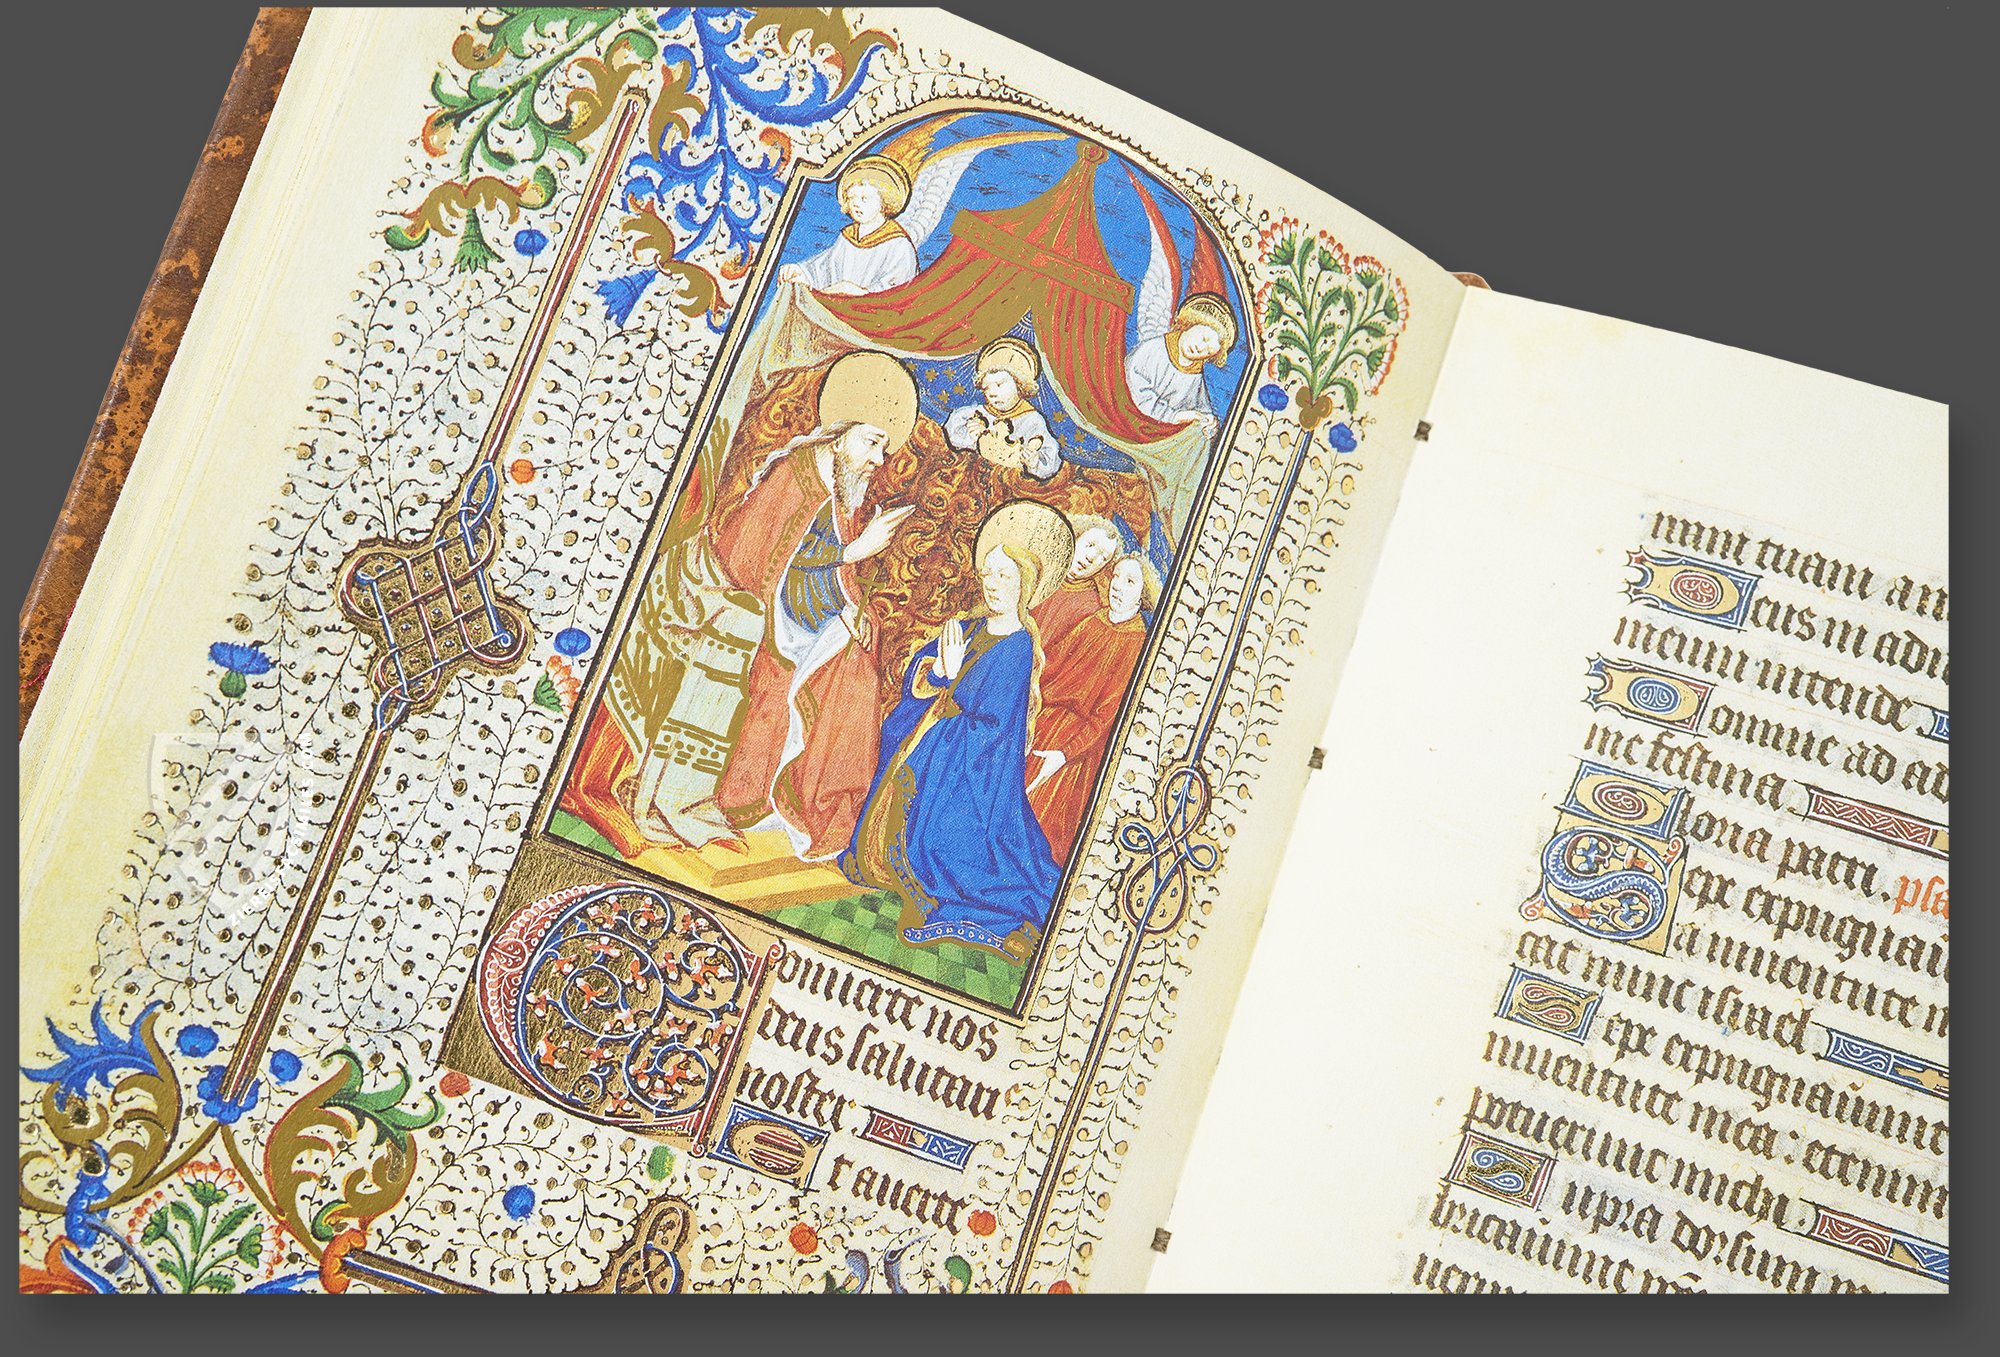 Conuerte nos
deus salutaris
noster.
Et auerte
iram tuam a no
Deus in adiu
meum intende
Domine ad ad
me festina.
Gloria patri. psa
Sepe expugnaue
a iuuentute m
cat nunc israel
Sepe expugnauerunt
iuuentute mea: etenim
potuerunt michi.
Supra dorsum me
bricauerunt